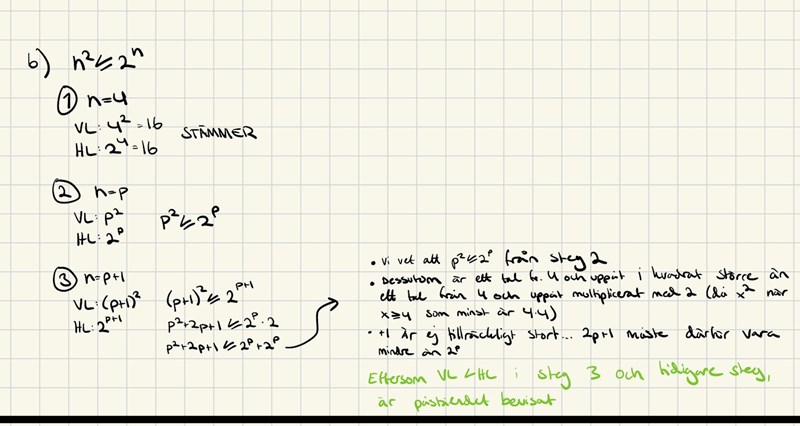 b) n² ≤ 2ⁿ
① n=4
VL: 4² = 16
HL: 2⁴ = 16
STÄMMER
② n=p
VL: p²
HL: 2ᵖ
p² ≤ 2ᵖ
③ n=p+1
VL: (p+1)²
HL: 2ᵖ⁺¹
(p+1)² ≤ 2ᵖ⁺¹
p²+2p+1 ≤ 2ᵖ · 2
p²+2p+1 ≤ 2ᵖ+2ᵖ
• Vi vet att p² ≤ 2ᵖ från steg 2
• Dessutom är ett tal fr. 4 och uppåt i kvadrat större än
ett tal från 4 och uppåt multiplicerat med 2 (då x² när
x≥4 som minst är 4·4)
• +1 är ej tillräckligt stort... 2p+1 måste därför vara
mindre än 2ᵖ
Eftersom VL < HL i steg 3 och tidigare steg,
är påståendet bevisat